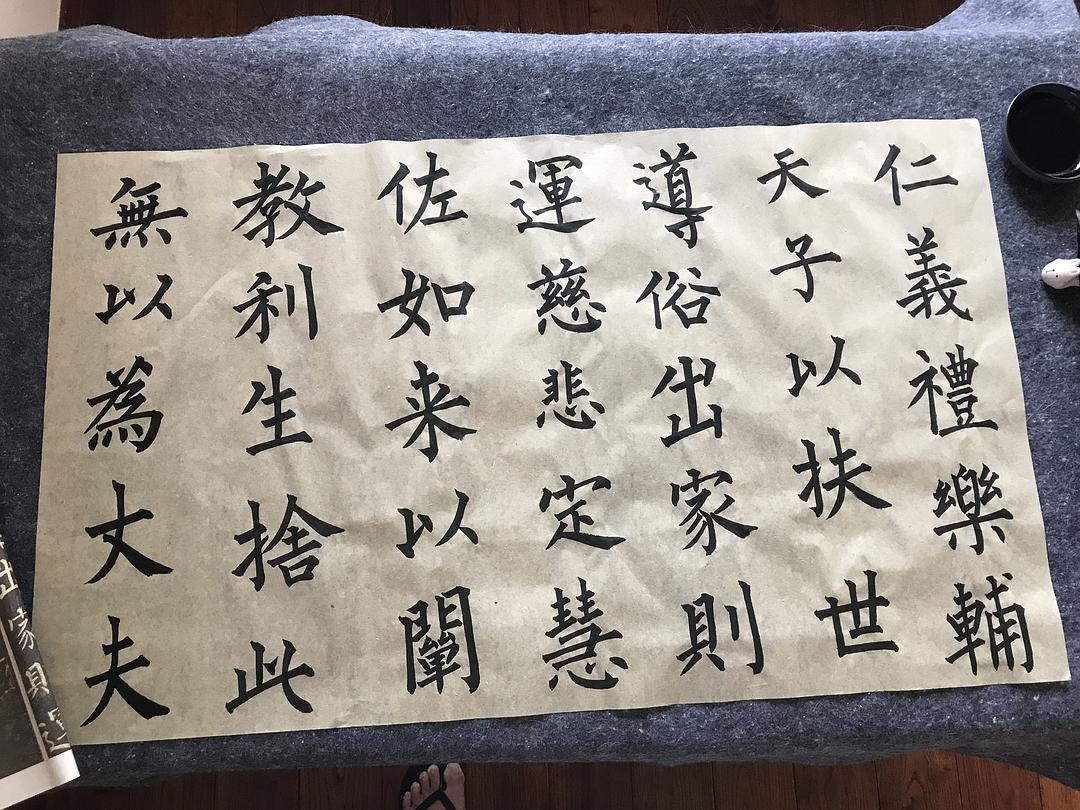 仁義禮樂輔
天子以扶世
導俗出家則
運慈悲定慧
佐如来以闡
教利生捨此
無以為丈夫
家